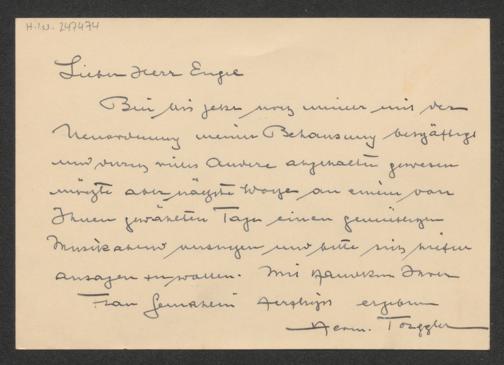 H.I.N. 247474
Lieber Herr Engel
Bin bis jetzt noch immer mit der
Neuordnung meiner Behausung beschäftigt
und durch vieles Andere abgehalten gewesen
möchte aber nächste Woche an einem von
Ihnen gewählten Tage einen gemütlichen
Musikabend und bitte sich hiefür
ansagen zu wollen. Mit Handkuss Ihrer
Frau Gemahlin herzlichst ergeben
Herm. Torggler